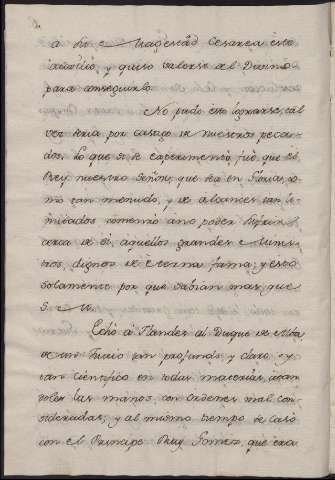 à su Magestad Cesarea este
exercicio, y quiso valerse del Divino
para conseguirlo.
No pudo esto lograrse, tal
vez seria por castigo de nuestros peca
dos. Lo que si se experimentó fué, que el
Rey nuestro Señor, que sea en Glorias, co
mo tan menudo, y de alcances tan li
mitados comenzó a no poder sufrir
cerca de si, aquellos grandes Minis
tros, dignos de eterna fama; y esto
solamente por que sabian mas que
S. M.
Echó à Flandes al Duque de Alba
de un Juicio tan profundo y claro y
tan cientifico en todas materias, atan
dole las manos, con ordenes mal con
sideradas; y al mismo tiempo se casó
con el Principe Ruy Gomez, que era